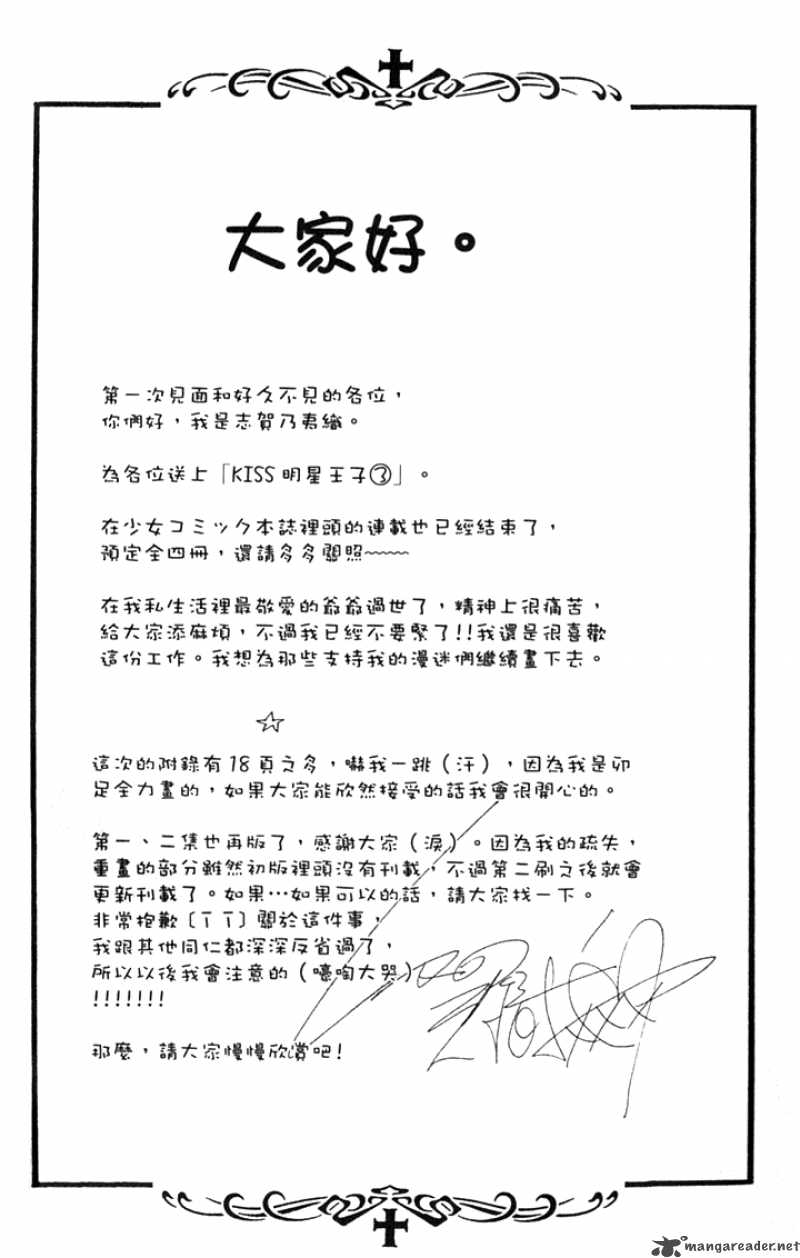 大家好。
第一次見面和好久不見的各位，
你們好，我是志賀乃夷織。
為各位送上「KISS明星王子③」。
在少女コミック本誌裡頭的連載也已經結束了，
預定全四冊，還請多多關照~~~~
在我私生活裡最敬愛的爺爺過世了，精神上很痛苦，
給大家添麻煩，不過我已經不要緊了!!我還是很喜歡
這份工作。我想為那些支持我的漫迷們繼續畫下去。
☆
這次的附錄有18頁之多，嚇我一跳（汗），因為我是卯
足全力畫的，如果大家能欣然接受的話我會很開心的。
第一、二集也再版了，感謝大家（淚）。因為我的疏失，
重畫的部分雖然初版裡頭沒有刊載，不過第二刷之後就會
更新刊載了。如果…如果可以的話，請大家找一下。
非常抱歉〔T T〕關於這件事，
我跟其他同仁都深深反省過了，
所以以後我會注意的（嚎啕大哭）
!!!!!!!
那麼，請大家慢慢欣賞吧!
mangareader.net